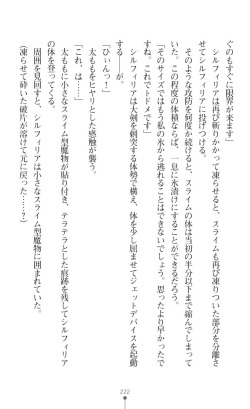 ぐのもすぐに限界が来ます」
　シルフィリアは再び斬りかかって凍らせると、スライムも再び凍りついた部分を分離さ
せてシルフィリアに投げつける。
　そのような攻防を何度か続けると、スライムの体は当初の半分以下まで縮んでしまって
いた。この程度の体積ならば、一息に氷漬けにすることができるだろう。
「そのサイズではもう私の氷から逃れることはできないでしょう。思ったより早かったで
すね。これでトドメです」
　シルフィリアは大剣を刺突する体勢で構え、体を少し屈ませてジェットデバイスを起動
する――が。
「ひぃん⁉」
　太ももをヒヤリとした感触が襲う。
「これ、は……」
　太ももに小さなスライム型魔物が貼り付き、テラテラとした痕跡を残してシルフィリア
の体を登ってくる。
　周囲を見回すと、シルフィリアは小さなスライム型魔物に囲まれていた。
（凍らせて砕いた破片が溶けて元に戻った……？）
222